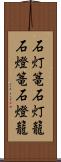 石灯篭石灯籠
石燈篭石燈籠